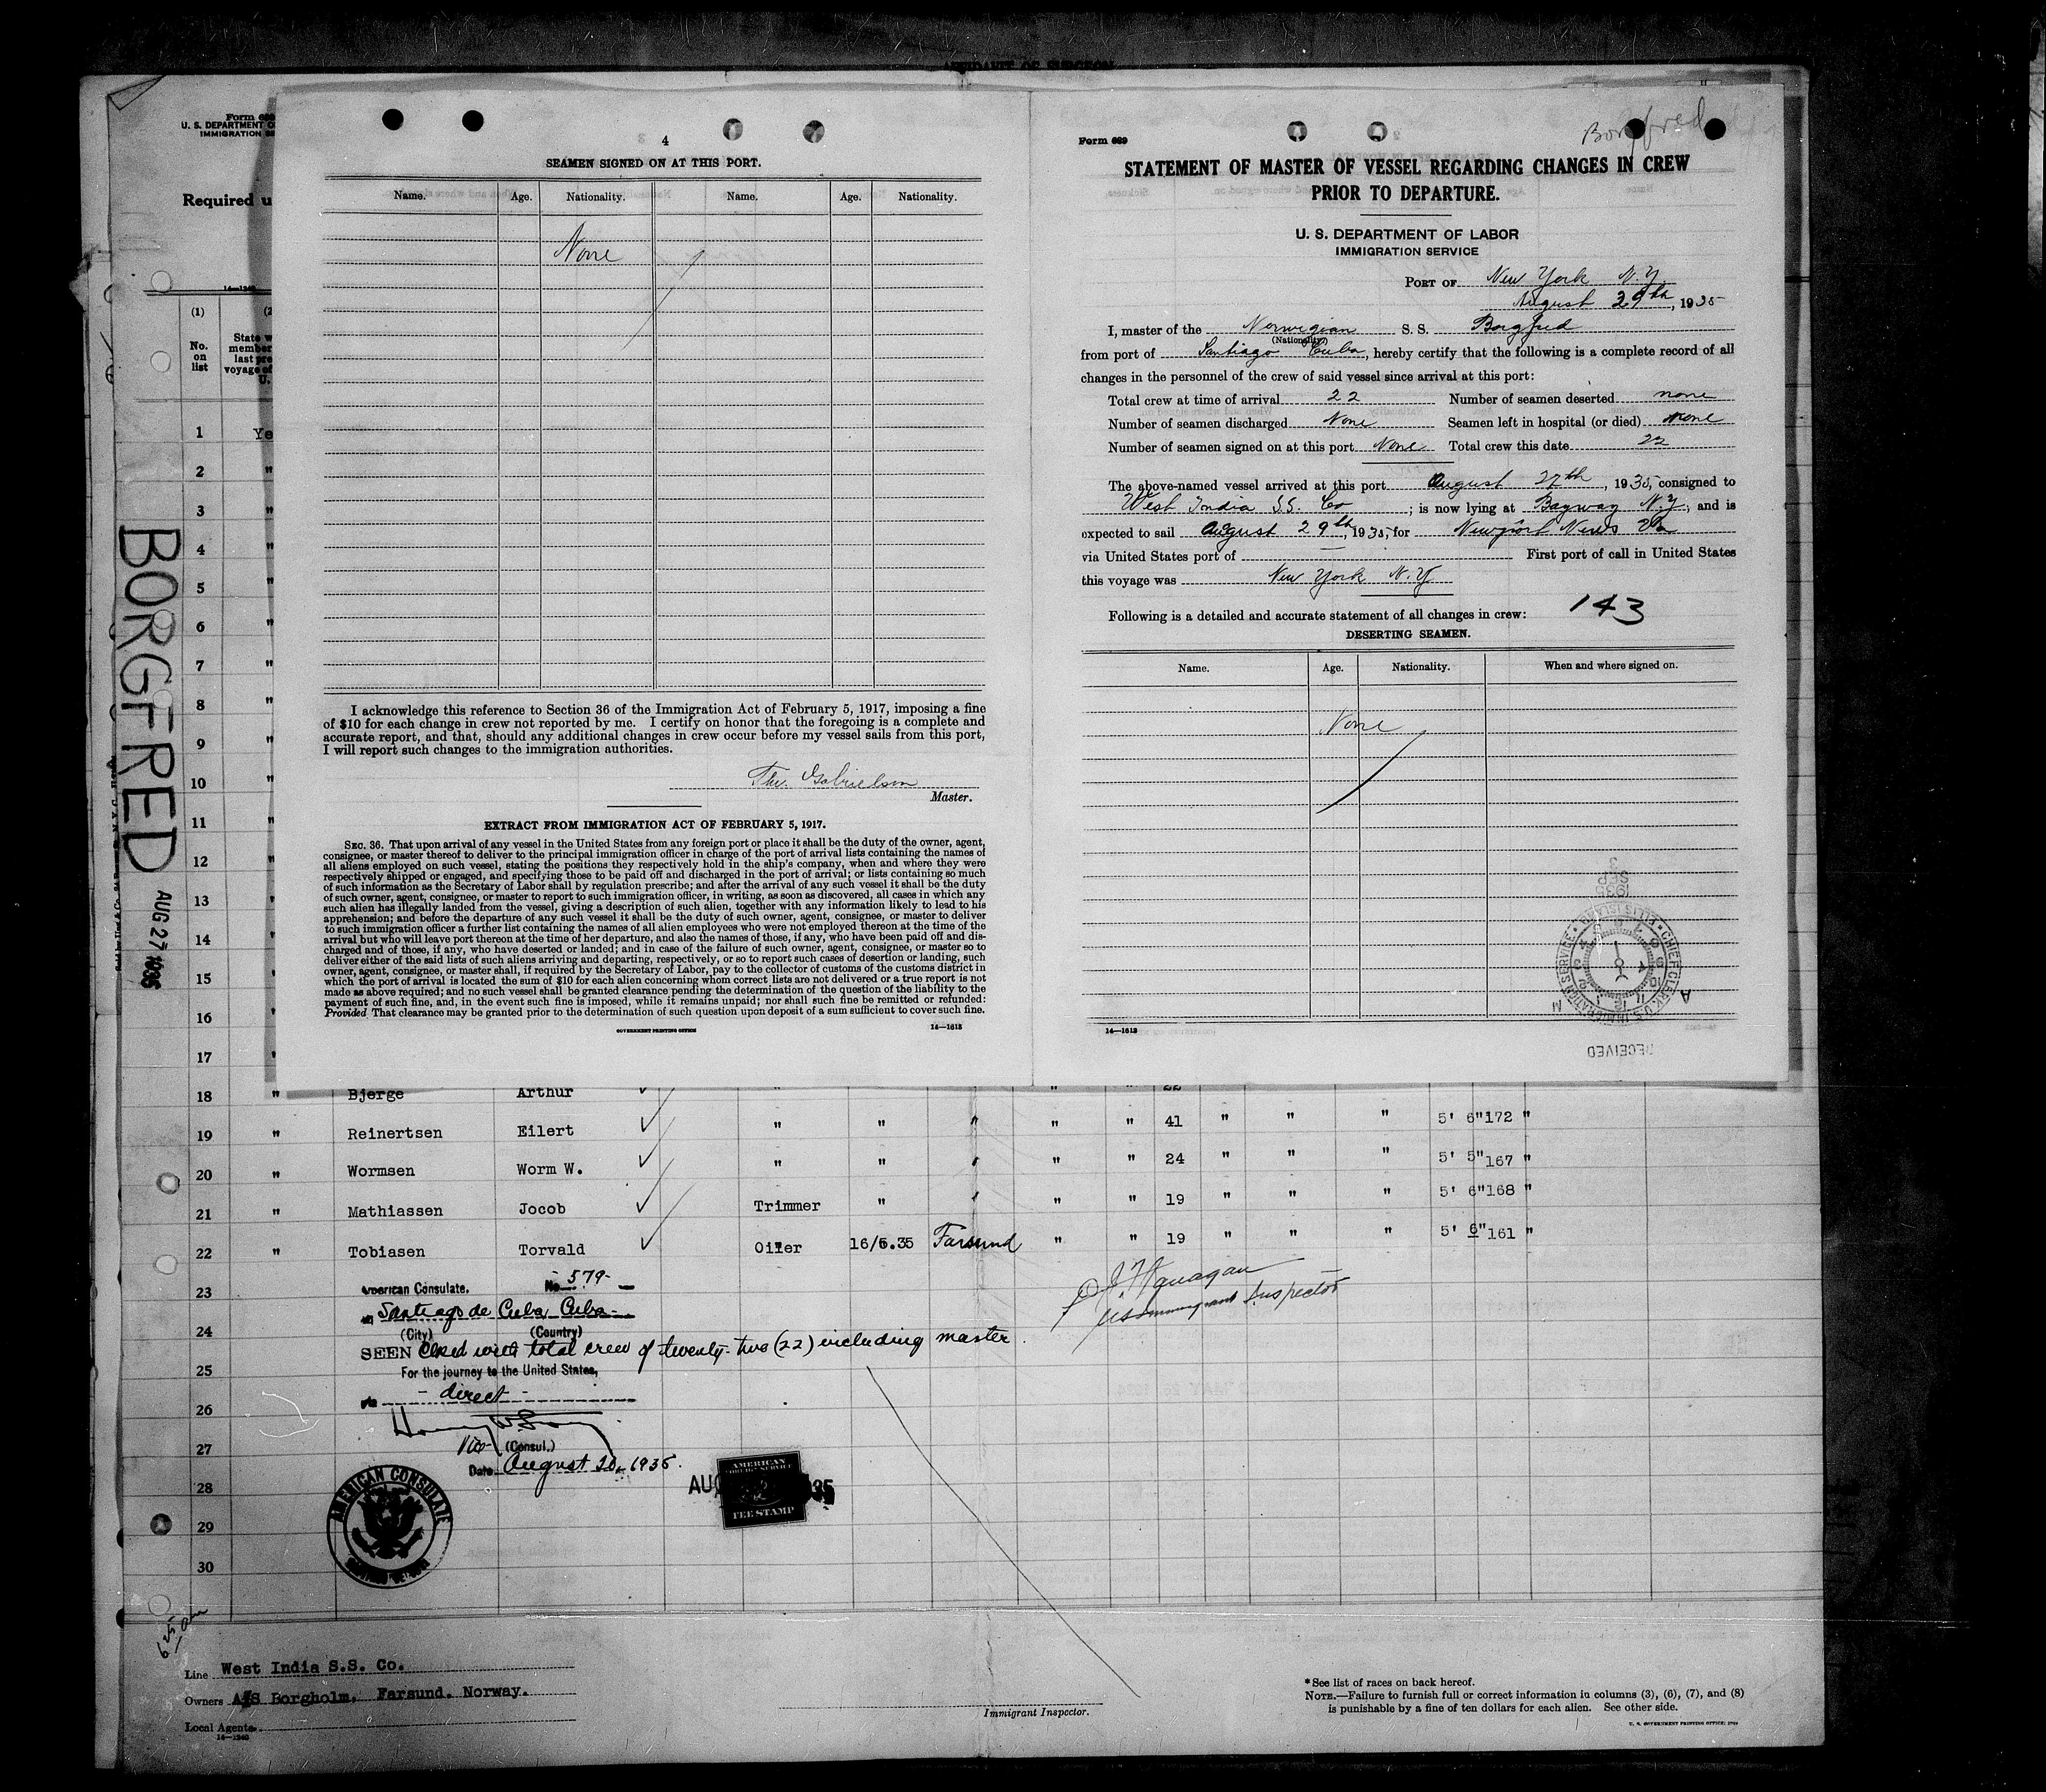 AFFIDAVIT OF SURGEON
Form 689
U. S. DEPARTMENT O
IMMIGRATION SE
Required u
14—1240
(1)
No.
on
list
State w
member
last pre
voyage of
U.
1 Ye
2 "
3 "
4 "
5 "
6 "
7 "
8 "
9 "
10 "
11 "
12 "
13 "
14 "
15 "
16 "
17 "
BORGFRED
AUG 27 1935
4
SEAMEN SIGNED ON AT THIS PORT.
Name. Age. Nationality. Name. Age. Nationality.
None
I acknowledge this reference to Section 36 of the Immigration Act of February 5, 1917, imposing a fine
of $10 for each change in crew not reported by me. I certify on honor that the foregoing is a complete and
accurate report, and that, should any additional changes in crew occur before my vessel sails from this port,
I will report such changes to the immigration authorities.
Thv. Gabrielsen
Master.
EXTRACT FROM IMMIGRATION ACT OF FEBRUARY 5, 1917.
SEC. 36. That upon arrival of any vessel in the United States from any foreign port or place it shall be the duty of the owner, agent,
consignee, or master thereof to deliver to the principal immigration officer in charge of the port of arrival lists containing the names of
all aliens employed on such vessel, stating the positions they respectively hold in the ship's company, when and where they were
respectively shipped or engaged, and specifying those to be paid off and discharged in the port of arrival; or lists containing so much
of such information as the Secretary of Labor shall by regulation prescribe; and after the arrival of any such vessel it shall be the duty
of such owner, agent, consignee, or master to report to such immigration officer, in writing, as soon as discovered, all cases in which any
such alien has illegally landed from the vessel, giving a description of such alien, together with any information likely to lead to his
apprehension; and before the departure of any such vessel it shall be the duty of such owner, agent, consignee, or master to deliver
to such immigration officer a further list containing the names of all alien employees who were not employed thereon at the time of the
arrival but who will leave port thereon at the time of her departure, and also the names of those, if any, who have been paid off and dis-
charged and of those, if any, who have deserted or landed; and in case of the failure of such owner, agent, consignee, or master so to
deliver either of the said lists of such aliens arriving and departing, respectively, or so to report such cases of desertion or landing, such
owner, agent, consignee, or master shall, if required by the Secretary of Labor, pay to the collector of customs of the customs district in
which the port of arrival is located the sum of $10 for each alien concerning whom correct lists are not delivered or a true report is not
made as above required; and no such vessel shall be granted clearance pending the determination of the question of the liability to the
payment of such fine, and, in the event such fine is imposed, while it remains unpaid; nor shall such fine be remitted or refunded:
Provided That clearance may be granted prior to the determination of such question upon deposit of a sum sufficient to cover such fine.
GOVERNMENT PRINTING OFFICE 14—1613
Form 689
Borgfred
STATEMENT OF MASTER OF VESSEL REGARDING CHANGES IN CREW
PRIOR TO DEPARTURE.
U. S. DEPARTMENT OF LABOR
IMMIGRATION SERVICE
PORT OF New York N.Y
August 29th, 1935
I, master of the Norwegian S. S. Borgfred
(Nationality)
from port of Santiago Cuba, hereby certify that the following is a complete record of all
changes in the personnel of the crew of said vessel since arrival at this port:
Total crew at time of arrival 22 Number of seamen deserted none
Number of seamen discharged None Seamen left in hospital (or died) none
Number of seamen signed on at this port None Total crew this date 22
The above-named vessel arrived at this port August 27th, 1935, consigned to
West India S.S. Co; is now lying at Bayway N.Y, and is
expected to sail August 29th, 1935, for Newport News Va
via United States port of — First port of call in United States
this voyage was New York N.Y
Following is a detailed and accurate statement of all changes in crew: 143
DESERTING SEAMEN.
Name. Age. Nationality. When and where signed on.
None
1935
SEP
3
CHIEF CLERK U.S. IMMIGRATION SERVICE ELLIS ISLAND
RECEIVED
14—1613
18 " Bjerge Arthur " " " 22
19 " Reinertsen Eilert " " " " " 41 " " " 5' 6" 172 "
20 " Wormsen Worm W. " " " " " 24 " " " 5' 5" 167 "
21 " Mathiassen Jocob Trimmer " " " " 19 " " " 5' 6" 168 "
22 " Tobiasen Torvald Oiler 16/6.35 Farsund " " 19 " " " 5' 6" 161 "
23
24
25
26
27
28
29
30
American Consulate. No. 579-
at Santiago de Cuba Cuba-
(City) (Country)
SEEN Closed with total crew of twenty-two (22) including master.
For the journey to the United States,
via - direct -
Vice (Consul.)
Date August 20, 1935.
Flanagan
US Immigrant Inspector
AMERICAN CONSULATE
AUG 35
AMERICAN
FOREIGN SERVICE
FEE STAMP
Line West India S.S. Co.
Owners A/S Borgholm, Farsund. Norway.
Local Agents
14—1240
Immigrant Inspector.
* See list of races on back hereof.
NOTE.—Failure to furnish full or correct information in columns (3), (6), (7), and (8)
is punishable by a fine of ten dollars for each alien. See other side.
U. S. GOVERNMENT PRINTING OFFICE: